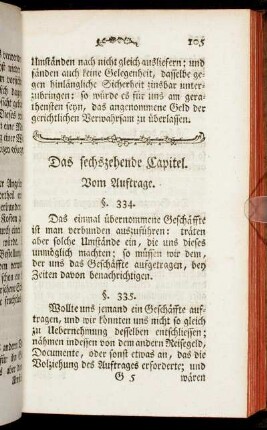 105
Umständen nach nicht gleich ausliefern; und
fänden auch keine Gelegenheit, dasselbe ge-
gen hinlängliche Sicherheit zinsbar unter-
zubringen: so würde es für uns am gera-
thensten seyn, das angenommene Geld der
gerichtlichen Verwahrsam zu überlassen.
Das sechszehende Capitel.
Vom Auftrage.
§. 334.
Das einmal übernommene Geschäffte
ist man verbunden auszuführen: träten
aber solche Umstände ein, die uns dieses
unmöglich machten; so müssen wir dem,
der uns das Geschäffte aufgetragen, bey
Zeiten davon benachrichtigen.
§. 335.
Wollte uns jemand ein Geschäffte auf-
tragen, und wir könnten uns nicht so gleich
zu Uebernehmung desselben entschliessen;
nähmen indessen von dem andern Reisegeld,
Documente, oder sonst etwas an, das die
Volziehung des Auftrages erforderte; und
G 5 wären